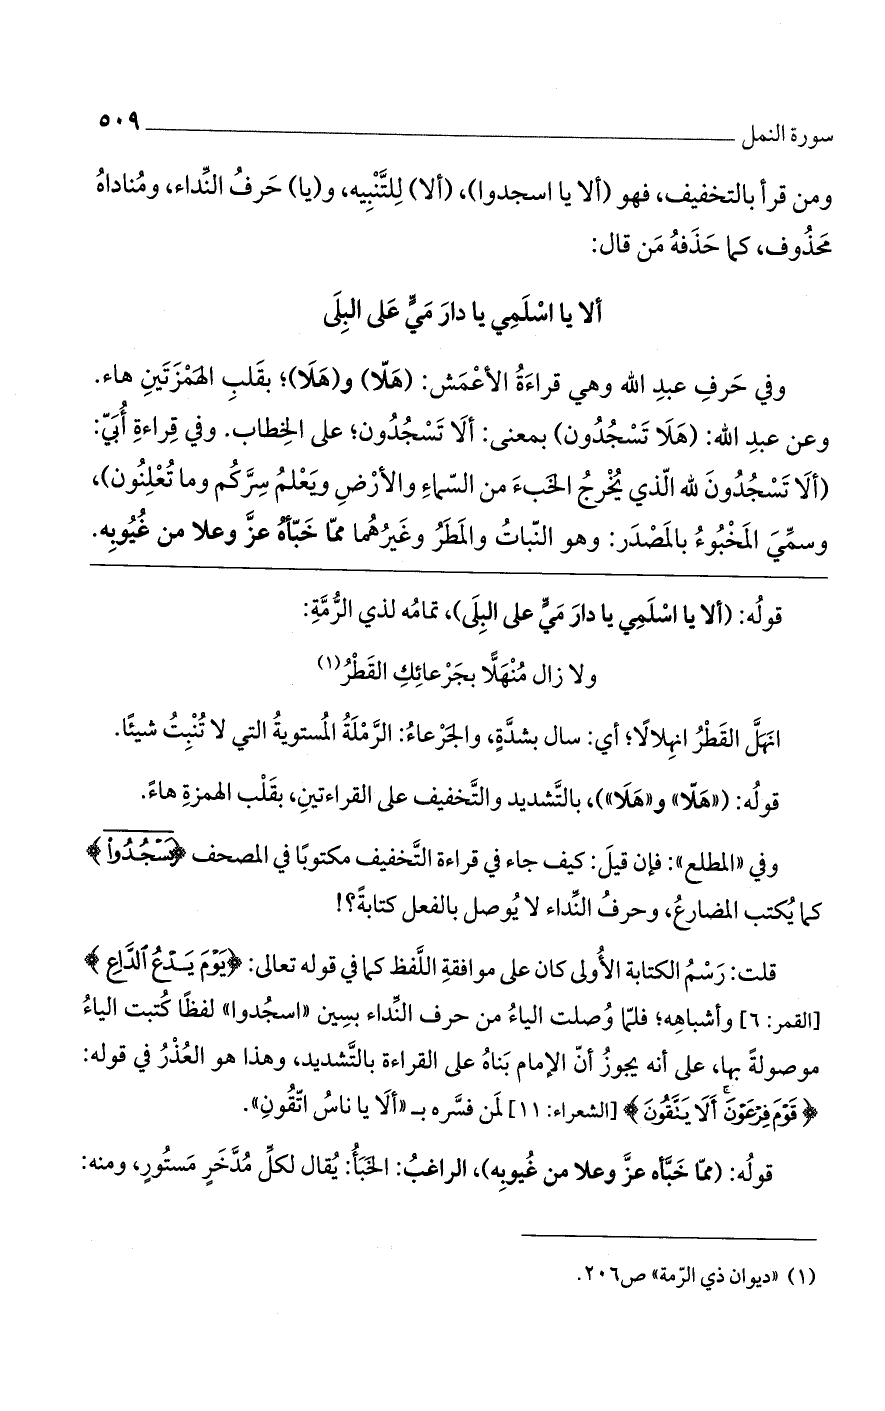 سورة النمل ٥٠٩
ومن قرأ بالتخفيف، فهو (ألا يا اسجدوا)، (ألا) لِلتَّنْبِيه، و(يا) حَرفُ النِّداء، ومُناداهُ
مَحَذُوف، كما حَذَفهُ مَن قال:
ألا يا اسْلَمِي يا دارَ مَيٍّ عَلى البِلَى
وفي حَرفِ عبدِ الله وهي قراءَةُ الأعْمَش: (هَلّا) و(هَلَا)؛ بقَلبِ الهَمْزَتَينِ هاء.
وعن عبدِ الله: (هَلَا تَسْجُدُون) بمعنى: ألَا تَسْجُدُون؛ على الخِطاب. وفي قِراءةِ أُبَيّ:
(ألَا تَسْجُدُونَ لله الّذي يُخْرِجُ الخَبءَ من السّماءِ والأرْضِ ويَعْلمُ سِرَّكُم وما تُعْلِنُون)،
وسمِّيَ المَخْبُوءُ بالمَصْدَر: وهو النّباتُ والمَطَرُ وغَيرُهُما ممّا خَبّأهُ عزَّ وعلا من غُيُوبِه.
قولُه: (ألا يا اسْلَمِي يا دارَ مَيٍّ على البِلَى)، تمامُه لذي الرُّمَّةِ:
ولا زال مُنْهَلًّا بجَرْعائِكِ القَطْرُ(١)
انهَلَّ القَطْرُ انهِلالًا؛ أي: سال بشدَّةٍ، والجَرْعاءُ: الرَّمْلَةُ المُستويةُ التي لا تُنْبِتُ شيئًا.
قولُه: («هَلّا» و«هَلَا»)، بالتَّشديد والتَّخفيف على القراءتينِ، بقَلْب الهمزةِ هاءً.
وفي «المطلع»: فإن قيلَ: كيف جاء في قراءة التَّخفيف مكتوبًا في المصحف ﴿يَسْجُدُوا۟﴾
كما يُكتب المضارعُ، وحرفُ النِّداء لا يُوصل بالفعل كتابةً؟!
قلت: رَسْمُ الكتابة الأُولى كان على موافقةِ اللَّفظ كما في قوله تعالى: ﴿يَوْمَ يَدْعُ ٱلدَّاعِ﴾
[القمر: ٦] وأشباهِه؛ فلمّا وُصلت الياءُ من حرف النِّداء بسِين «اسجُدوا» لفظًا كُتبت الياءُ
موصولةً بها، على أنه يجوزُ أنّ الإمام بَناهُ على القراءة بالتَّشديد، وهذا هو العُذْرُ في قوله:
﴿قَوْمَ فِرْعَوْنَ ۚ أَلَا يَتَّقُونَ﴾ [الشعراء: ١١] لمن فسَّره بـ «ألَا يا ناسُ اتّقُونِ».
قولُه: (ممّا خَبَّأه عزَّ وعلا من غُيوبِه)، الراغبُ: الخَبأُ: يُقال لكلِّ مُدَّخَرٍ مَستُورٍ، ومنه:
(١) «ديوان ذي الرّمة» ص٢٠٦.